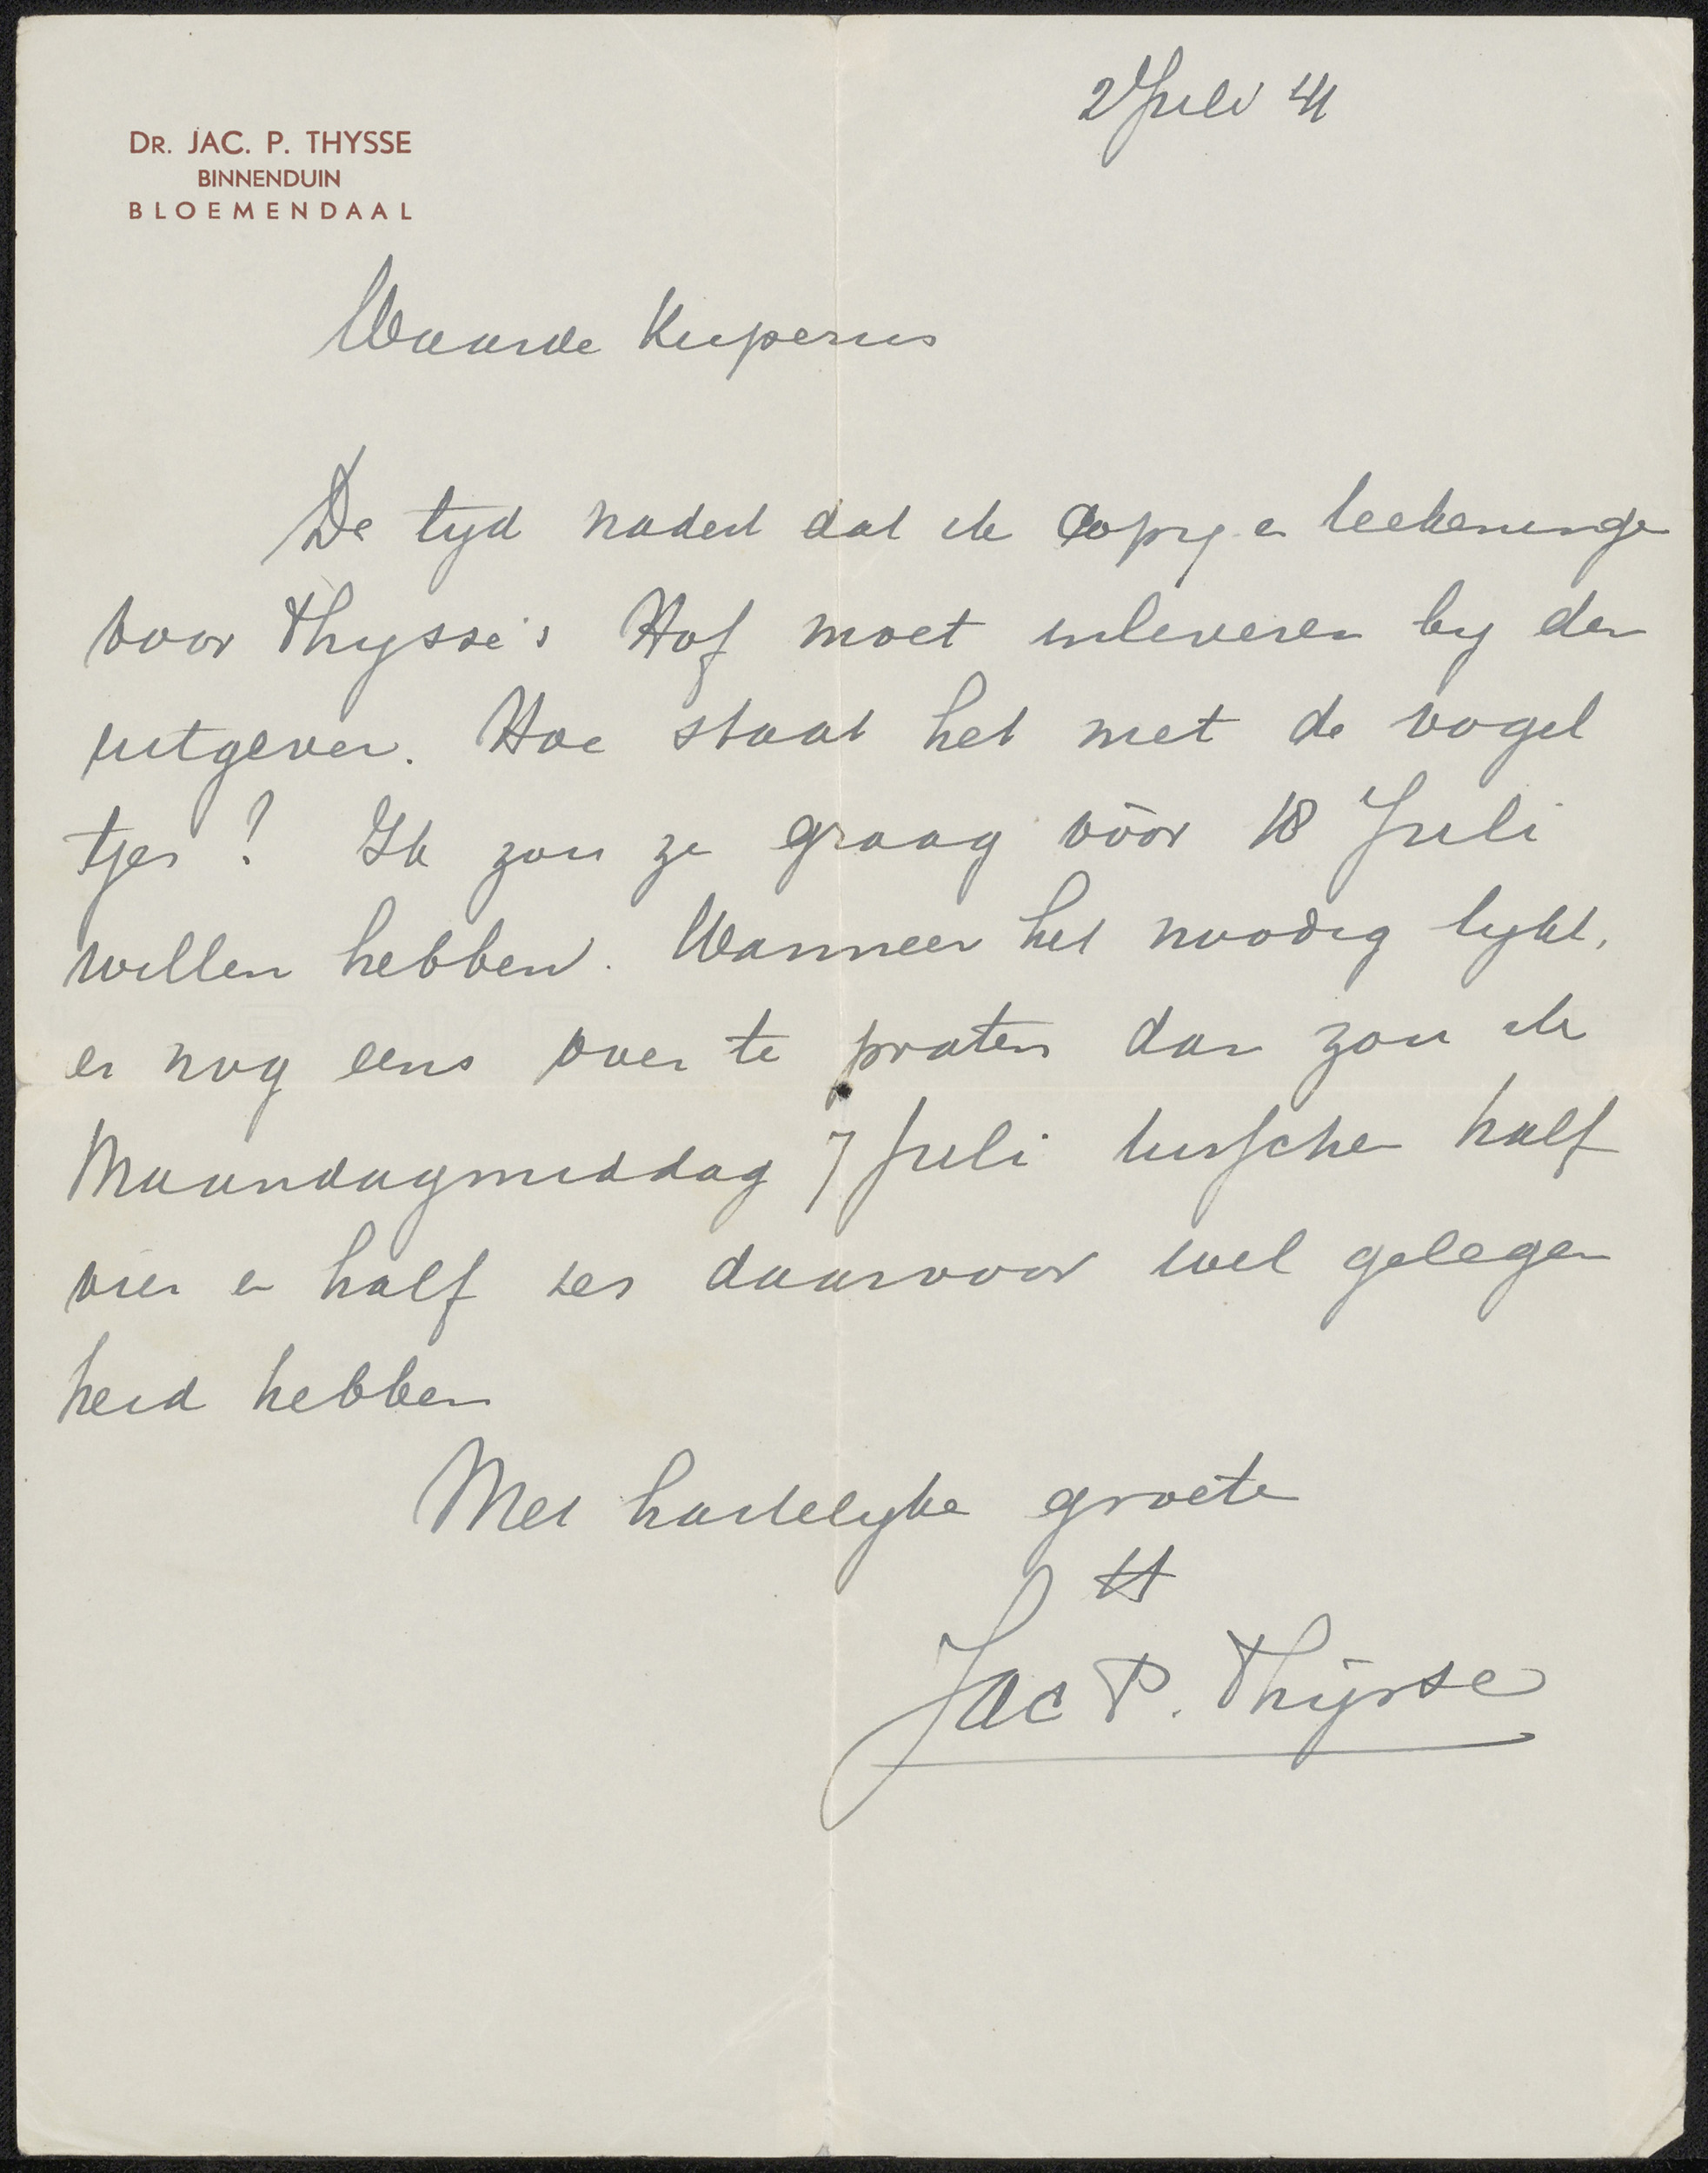 2 Juli 41
DR. JAC. P. THYSSE
BINNENDUIN
BLOEMENDAAL
Waarde Kuperus
De tyd nadert dat ik copy en teekeningen
voor Thysse's Hof moet inleveren by den
uitgever. Hoe staat het met de vogel
tjes? Ik zou ze graag vòòr 18 Juli
willen hebben. Wanneer het noodig lykt,
er nog eens over te praten dan zou ik
Maandagmiddag 7 Juli tusschen half
vier en half zes daarvoor wel gelegen
heid hebben
Met hartelyke groeten
tt
Jac P. Thijsse